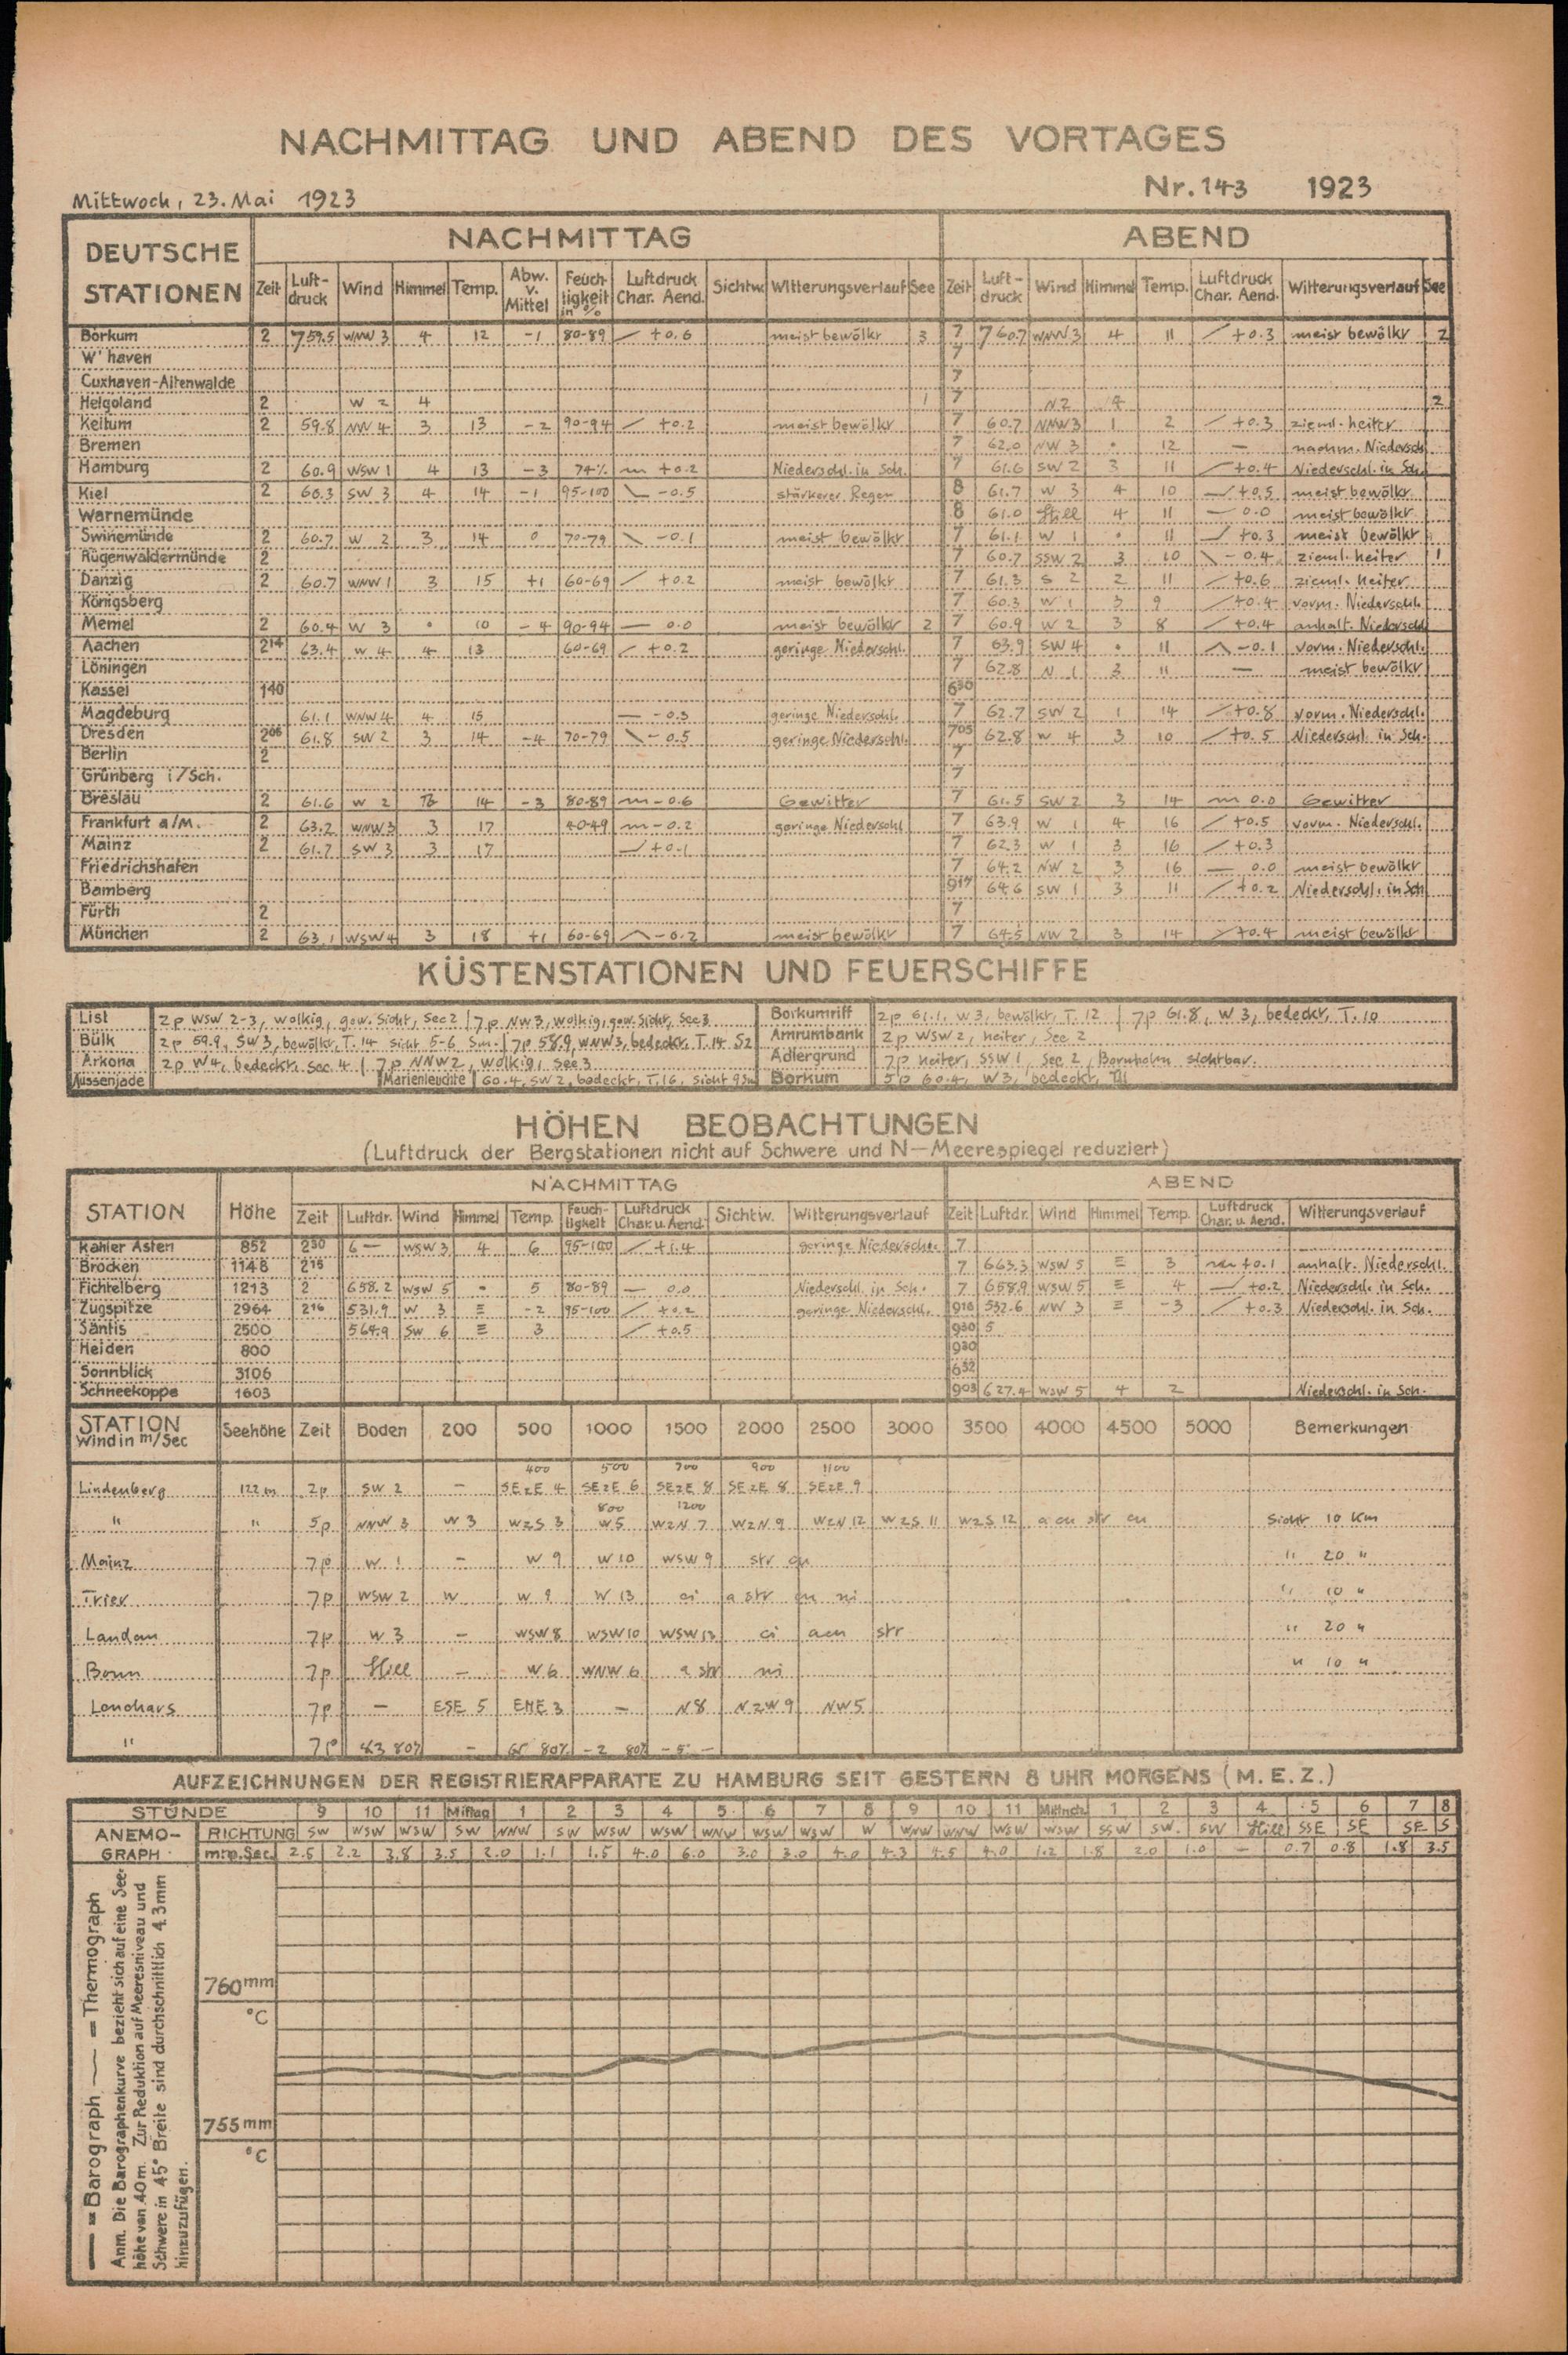 NACHMITTAG UND ABEND DES VORTAGES
Mittwoch, 23. Mai 1923 Nr. 143 1923
DEUTSCHE STATIONEN NACHMITTAG ABEND
Zeit Luft-druck Wind Himmel Temp. Abw. v. Mittel Feuch-tigkeit in % Luftdruck Char. Aend. Sichtw. Witterungsverlauf See Zeit Luft-druck Wind Himmel Temp. Luftdruck Char. Aend. Witterungsverlauf See
Borkum 2 759.5 WNW 3 4 12 -1 80-89 +0.6 meist bewölkt 3 7 760.7 WNW 3 4 11 +0.3 meist bewölkt 2
W'haven 7
Cuxhaven-Altenwalde 7
Helgoland 2 W 2 4 1 7 N 2 4 2
Keitum 2 59.8 NW 4 3 13 -2 90-94 +0.2 meist bewölkt 7 60.7 NNW 3 1 2 +0.3 zieml. heiter
Bremen 7 62.0 NW 3 • 12 — nachm. Niedersch
Hamburg 2 60.9 WSW 1 4 13 -3 74% +0.2 Niederschl. in Sch. 7 61.6 SW 2 3 11 +0.4 Niederschl. in Sch.
Kiel 2 60.3 SW 3 4 14 -1 95-100 -0.5 stärkerer Regen 8 61.7 W 3 4 10 +0.5 meist bewölkt
Warnemünde 8 61.0 Still 4 11 0.0 meist bewölkt
Swinemünde 2 60.7 W 2 3 14 0 70-79 -0.1 meist bewölkt 7 61.1 W 1 • 11 +0.3 meist bewölkt
Rügenwaldermünde 2 7 60.7 SSW 2 3 10 -0.4 zieml. heiter 1
Danzig 2 60.7 WNW 1 3 15 +1 60-69 +0.2 meist bewölkt 7 61.3 S 2 2 11 +0.6 zieml. heiter
Königsberg 7 60.3 W 1 3 9 +0.4 vorm. Niederschl.
Memel 2 60.4 W 3 • 10 -4 90-94 — 0.0 meist bewölkt 2 7 60.9 W 2 3 8 +0.4 anhalt. Niederschl
Aachen 2 14 63.4 W 4 4 13 60-69 +0.2 geringe Niederschl. 7 63.9 SW 4 • 11 -0.1 vorm. Niederschl.
Löningen 7 62.8 N 1 3 11 — meist bewölkt
Kassel 1 40 6 30
Magdeburg 61.1 WNW 4 4 15 — -0.3 geringe Niederschl. 7 62.7 SW 2 1 14 +0.8 vorm. Niederschl.
Dresden 2 06 61.8 SW 2 3 14 -4 70-79 -0.5 geringe Niederschl. 7 05 62.8 W 4 3 10 +0.5 Niederschl. in Sch.
Berlin 2 7
Grünberg i/Sch. 7
Breslau 2 61.6 W 2 14 -3 80-89 -0.6 Gewitter 7 61.5 SW 2 3 14 0.0 Gewitter
Frankfurt a/M. 2 63.2 WNW 3 3 17 40-49 -0.2 geringe Niederschl 7 63.9 W 1 4 16 +0.5 vorm. Niederschl.
Mainz 2 61.7 SW 3 3 17 +0.1 7 62.3 W 1 3 16 +0.3
Friedrichshafen 7 64.2 NW 2 3 16 — 0.0 meist bewölkt
Bamberg 9 17 64.6 SW 1 3 11 +0.2 Niederschl. in Sch
Fürth 2 7
München 2 63.1 WSW 4 3 18 +1 60-69 -0.2 meist bewölkt 7 64.5 NW 2 3 14 +0.4 meist bewölkt
KÜSTENSTATIONEN UND FEUERSCHIFFE
List 2p WSW 2-3, wolkig, gew. Sicht, See 2 | 7p NW 3, wolkig, gew. Sicht, See 3 Borkumriff 2p 61.1, W 3, bewölkt, T. 12 | 7p 61.8, W 3, bedeckt, T. 10
Bülk 2p 59.9, SW 3, bewölkt, T. 14 Sicht 5-6 Sm. | 7p 58.9, WNW 3, bedeckt, T. 14 S2 Amrumbank 2p WSW 2, heiter, See 2
Arkona 2p W 4, bedeckt, See 4 | 7p NNW 2, wolkig, See 3 Adlergrund 7p heiter, SSW 1, See 2, Bornholm sichtbar.
Aussenjade Marienleuchte 60.4, SW 2, bedeckt, T. 16, Sicht 9 Sm Borkum 5p 60.4, W 3, bedeckt, T11
HÖHEN BEOBACHTUNGEN
(Luftdruck der Bergstationen nicht auf Schwere und N—Meerespiegel reduziert)
STATION Höhe NACHMITTAG ABEND
Zeit Luftdr. Wind Himmel Temp. Feuch-tigkeit Luftdruck Char. u. Aend. Sichtw. Witterungsverlauf Zeit Luftdr. Wind Himmel Temp. Luftdruck Char. u. Aend. Witterungsverlauf
Kahler Asten 852 2 30 6 — WSW 3 4 6 95-100 +1.4 geringe Niederschl. 7
Brocken 1148 2 15 7 663.3 WSW 5 ≡ 3 +0.1 anhalt. Niederschl.
Fichtelberg 1213 2 658.2 WSW 5 • 5 80-89 — 0.0 Niederschl. in Sch. 7 658.9 WSW 5 ≡ 4 +0.2 Niederschl. in Sch.
Zugspitze 2964 2 16 531.9 W 3 ≡ -2 95-100 +0.2 geringe Niederschl. 9 16 532.6 NW 3 ≡ -3 +0.3 Niederschl. in Sch.
Säntis 2500 564.9 SW 6 ≡ 3 +0.5 9 30 5
Heiden 800 9 30
Sonnblick 3106 6 52
Schneekoppe 1603 9 03 627.4 WSW 5 4 2 Niederschl. in Sch.
STATION Wind in m/Sec Seehöhe Zeit Boden 200 500 1000 1500 2000 2500 3000 3500 4000 4500 5000 Bemerkungen
400 500 700 900 1100
Lindenberg 122 m 2p SW 2 — SEzE 4 SEzE 6 SEzE 8 SEzE 8 SEzE 9
800 1200
" " 5p NNW 3 W 3 WzS 3 W 5 WzN 7 WzN 9 WzN 12 WzS 11 WzS 12 a cu str cu Sicht 10 Km
Mainz 7p W 1 — W 9 W 10 WSW 9 str cu " 20 "
Trier 7p WSW 2 W W 9 W 13 ci a str cu ni " 10 "
Landau 7p W 3 — WSW 8 WSW 10 WSW 13 ci acu str " 20 "
Bonn 7p Still — W 6 WNW 6 a str ni " 10 "
7p — ESE 5 ENE 3 — N 8 NzW 9 NW 5
" 7p 80% — 80% -2 80% -5 —
AUFZEICHNUNGEN DER REGISTRIERAPPARATE ZU HAMBURG SEIT GESTERN 8 UHR MORGENS (M. E. Z.)
STUNDE 9 10 11 Mittag 1 2 3 4 5 6 7 8 9 10 11 Mittnch. 1 2 3 4 5 6 7 8
ANEMO-GRAPH RICHTUNG SW WSW WSW SW NNW SW WSW WSW WNW WSW WSW W WNW WNW WSW WSW SSW SW. SW Still SSE SE SE S
m. p. Sec. 2.5 2.2 3.8 3.5 2.0 1.1 1.5 4.0 6.0 3.0 3.0 4.0 4.3 4.5 4.0 1.2 1.8 2.0 1.0 — 0.7 0.8 1.8 3.5
— = Barograph — = Thermograph
Anm. Die Barographenkurve bezieht sich auf eine See-
höhe von 40 m. Zur Reduktion auf Meeresniveau und
Schwere in 45° Breite sind durchschnittlich 4.3 mm
hinzuzufügen.
760 mm
°C
755 mm
°C